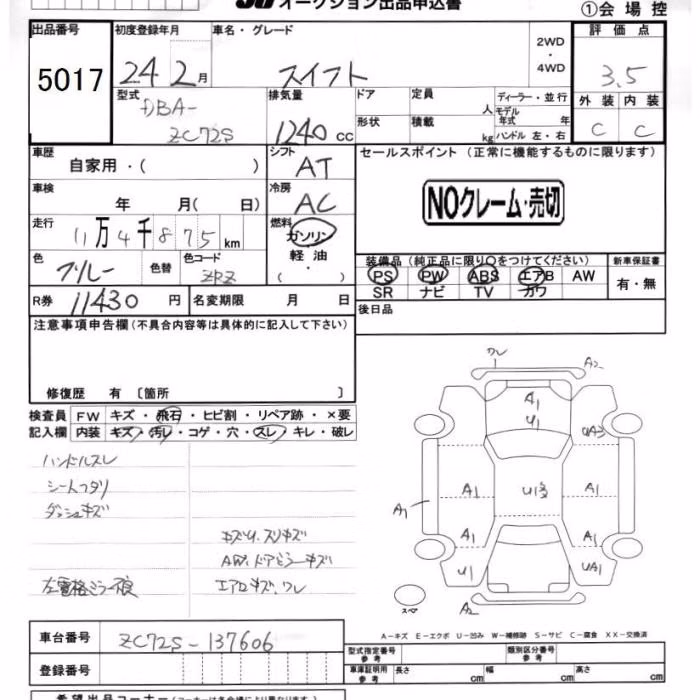 オークション出品申込書
①会場控
出品番号 初度登録年月 車名・グレード 2WD・4WD 評価点
5017 24 2月 スイフト 3.5
型式 DBA- ZC72S 排気量 1240 cc
ドア 定員 人 ディーラー・並行 外装 内装
形状 積載 kg モデル年式 年 ハンドル 左・右 C C
車歴 自家用・( ) シフト AT セールスポイント (正常に機能するものに限ります)
車検 年 月( 日) 冷房 AC NOクレーム・売切
走行 11万4千875km 燃料 ガソリン・軽油・( )
色 ブルー 色替 色コード ZPZ
装備品(純正品に限り○をつけてください) 新車保証書
PS PW ABS エアB AW 有・無
SR ナビ TV カワ
R券 11430円 名変期限 月 日 後日品
注意事項申告欄(不具合内容等は具体的に記入して下さい)
修復歴 有 〔箇所 〕
検査員 FW キズ・飛石・ヒビ割・リペア跡・×要
記入欄 内装 キズ・汚レ・コゲ・穴・スレ・キレ・破レ
ハンドルスレ
シートヘタリ
ダッシュキズ
キズU、スリキズ
AW、ドアミラーキズ
左電格ミラー不良 エアロキズ、ワレ
ワレ A2
A1 U1 UA3
A1 A1 U13 A1
A1 A1
U1 UA1
スペ A2
A-キズ E-エクボ U-凹み W-補修跡 S-サビ C-腐食 XX-交換済
車台番号 ZC72S-137606
型式指定番号 参考 類別区分番号 参考
登録番号 車庫証明用 参考 長さ cm 幅 cm 高さ cm
希望出品コーナー